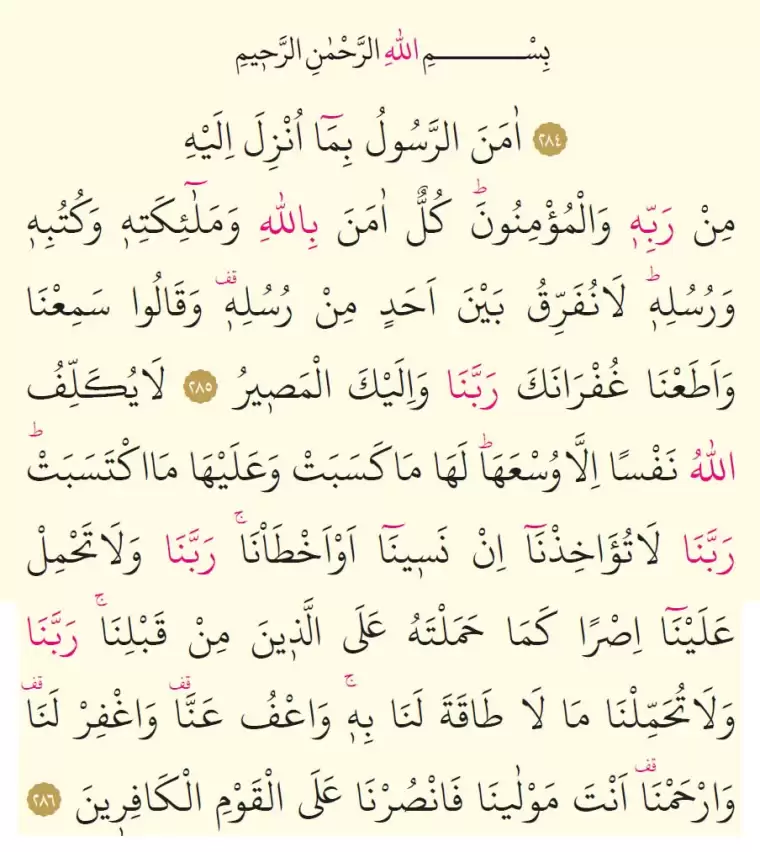 بِسْــــــــــمِ اللّٰهِ الرَّحْمٰنِ الرَّحٖيمِ
﴿٢٨٤﴾ اٰمَنَ الرَّسُولُ بِمَٓا اُنْزِلَ اِلَيْهِ
مِنْ رَبِّهٖ وَالْمُؤْمِنُونَؕ كُلٌّ اٰمَنَ بِاللّٰهِ وَمَلٰٓئِكَتِهٖ وَكُتُبِهٖ
وَرُسُلِهٖؕ لَانُفَرِّقُ بَيْنَ اَحَدٍ مِنْ رُسُلِهٖࣞ وَقَالُوا سَمِعْنَا
وَاَطَعْنَا غُفْرَانَكَ رَبَّنَا وَاِلَيْكَ الْمَصٖيرُ ﴿٢٨٥﴾ لَايُكَلِّفُ
اللّٰهُ نَفْسًا اِلَّاوُسْعَهَاؕ لَهَا مَاكَسَبَتْ وَعَلَيْهَا مَااكْتَسَبَتْؕ
رَبَّنَا لَاتُؤَاخِذْنَٓا اِنْ نَسٖينَٓا اَوْاَخْطَاْنَاۚ رَبَّنَا وَلَاتَحْمِلْ
عَلَيْنَٓا اِصْرًا كَمَا حَمَلْتَهُ عَلَى الَّذٖينَ مِنْ قَبْلِنَاۚ رَبَّنَا
وَلَاتُحَمِّلْنَا مَا لَا طَاقَةَ لَنَا بِهٖۚ وَاعْفُ عَنَّاࣞ وَاغْفِرْ لَنَاࣞ
وَارْحَمْنَاࣞ اَنْتَ مَوْلٰينَا فَانْصُرْنَا عَلَى الْقَوْمِ الْكَافِرٖينَ ﴿٢٨٦﴾